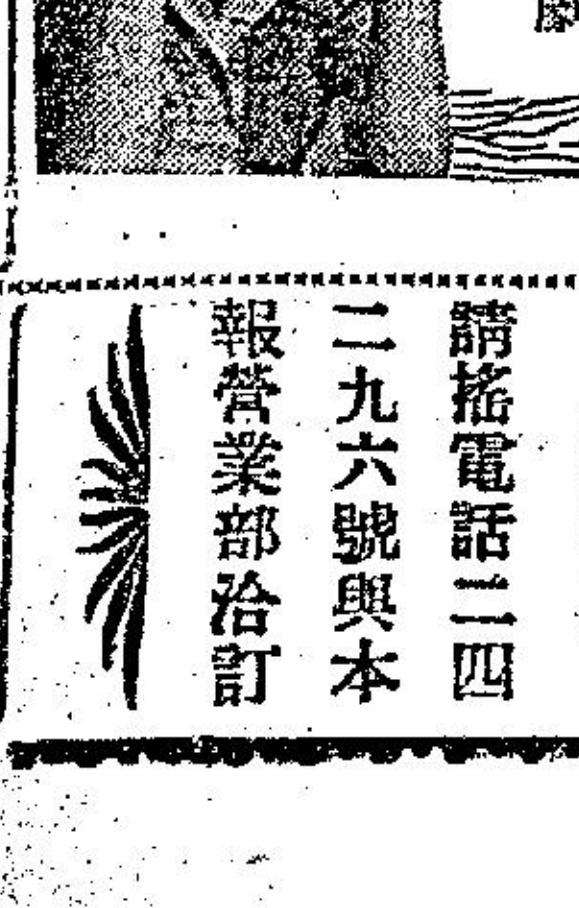 請搖電話二四
二九六號與本
報營業部洽訂